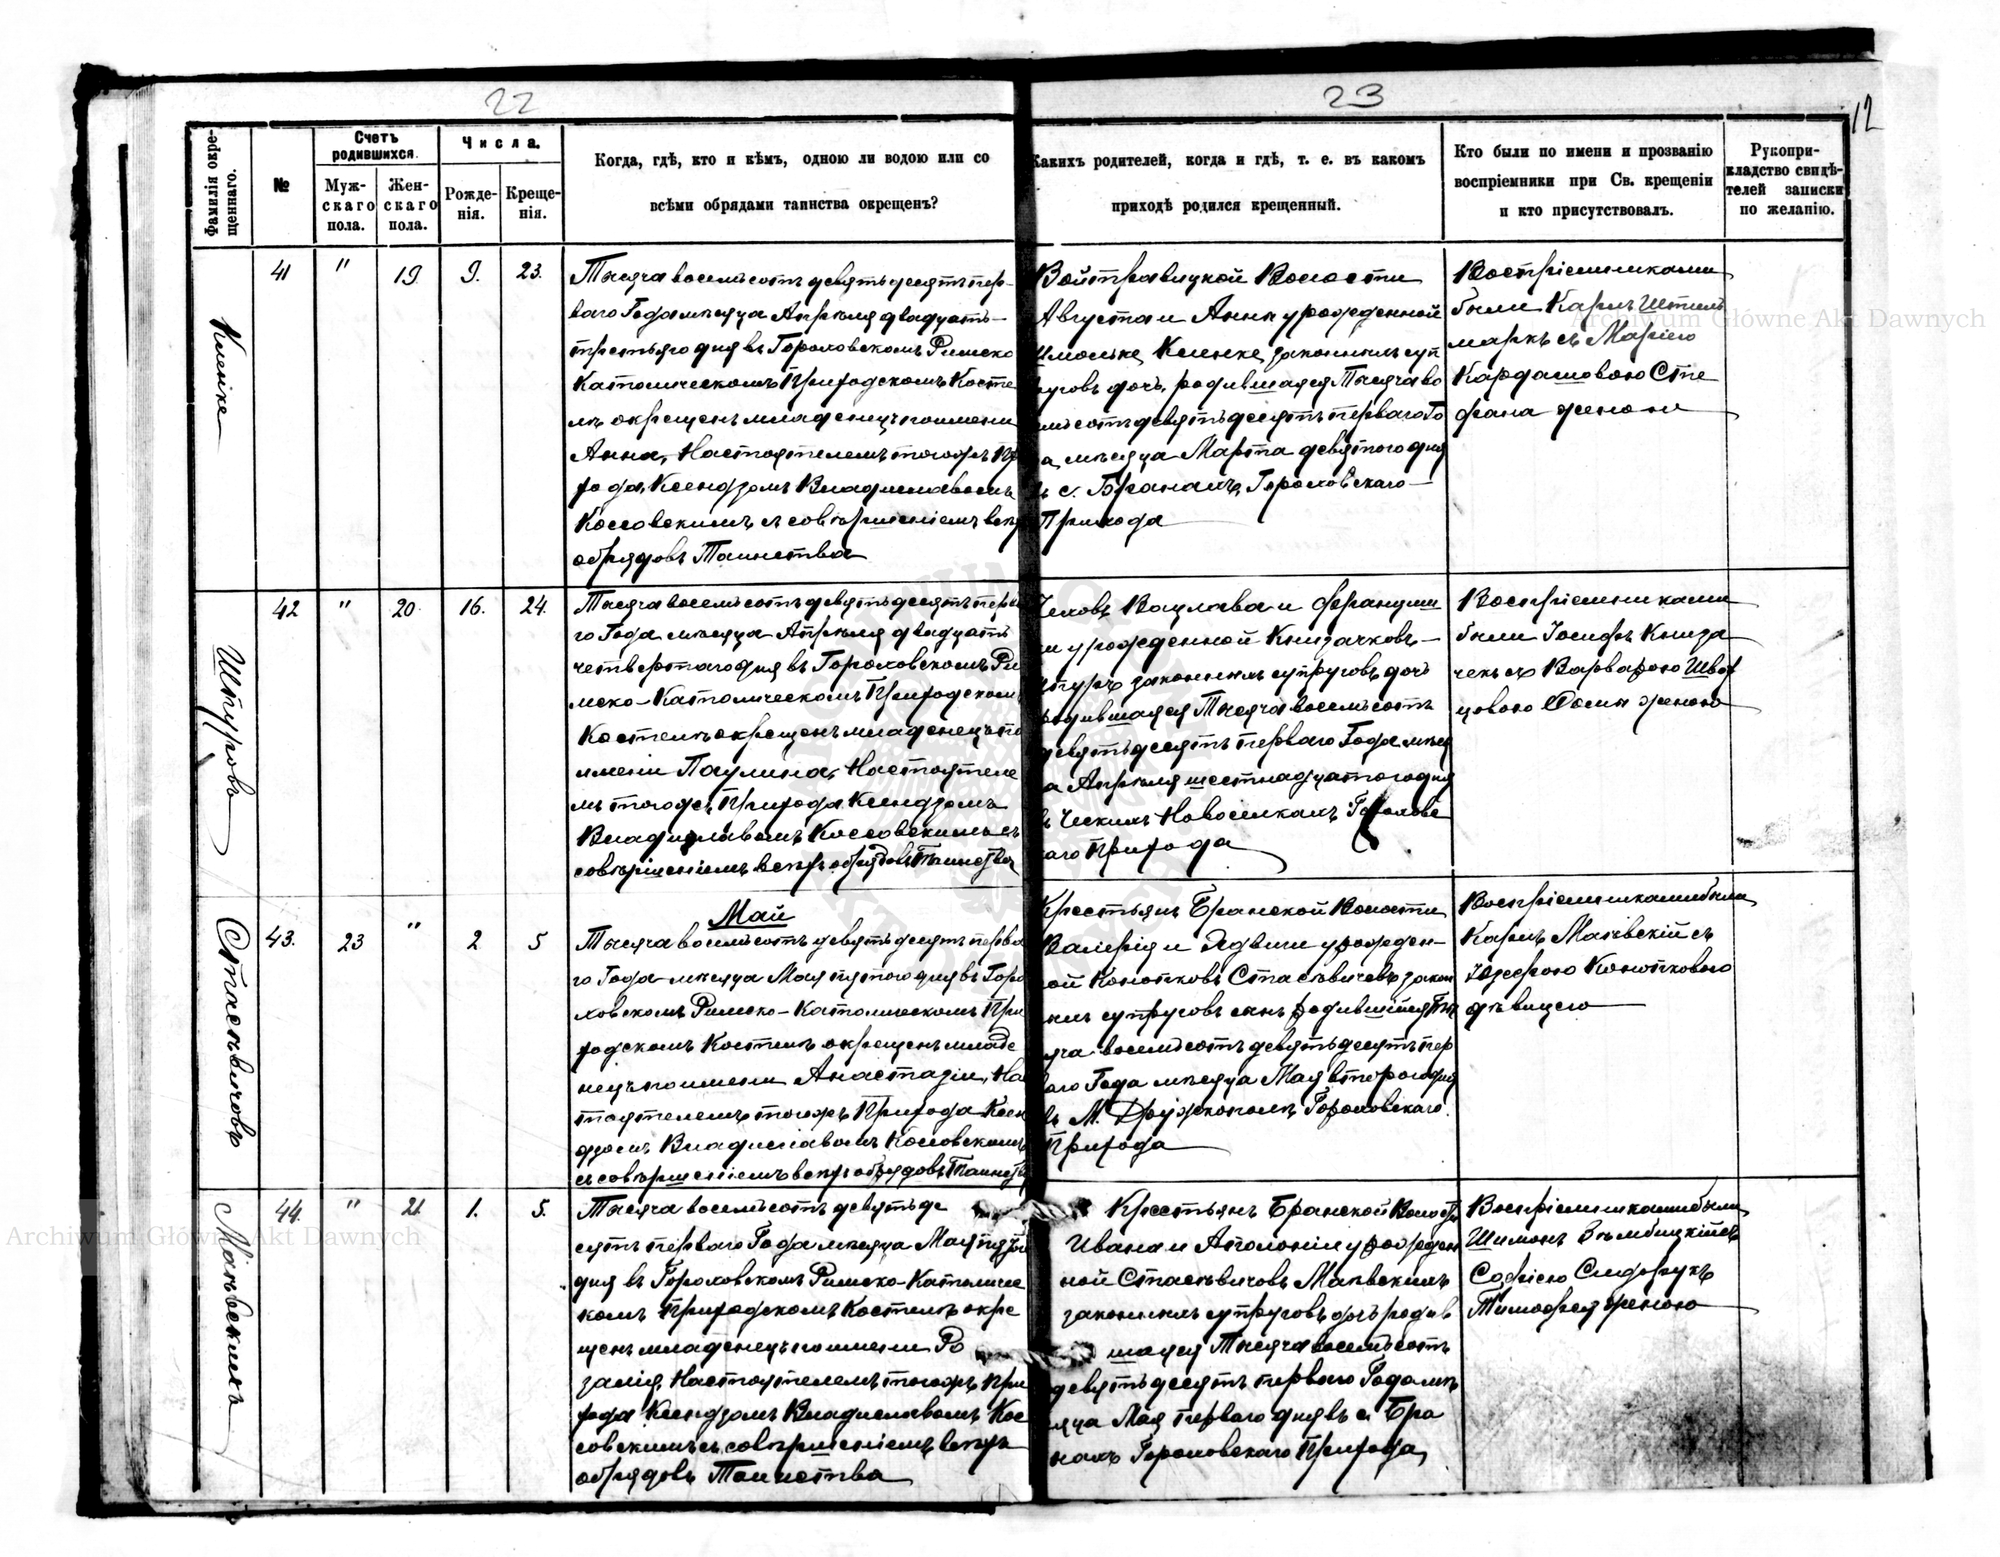 22
23
12
Фамилія окрещеннаго.
№
Счетъ родившихся.
Мужскаго пола.
Женскаго пола.
Числа.
Рожденія.
Крещенія.
Когда, гдѣ, кто и кѣмъ, одною ли водою или со
всѣми обрядами таинства окрещенъ?
Какихъ родителей, когда и гдѣ, т. е. въ какомъ
приходѣ родился крещенный.
Кто были по имени и прозванію
воспріемники при Св. крещеніи
и кто присутствовалъ.
Рукопри-
кладство свидѣ-
телей записки
по желанію.
Кленке
41 " 19 9. 23.
Тысяча восемьсотъ девятьдесятъ пер-
ваго Года мѣсяца Апрѣля двадцать-
третьяго дня въ Гороховскомъ Римско
Католическомъ Приходскомъ Косте
лѣ окрещенъ младенецъ по имени
Анна, Настоятелемъ тогожъ При
хода, Ксендзомъ Владиславомъ
Коссовскимъ съ совершеніемъ всѣхъ
обрядовъ Таинства
Войправицкой Волости
Августа и Анны урожденной
Кленке законныхъ суп
руговъ дочь, родившаяся Тысяча во
семьсотъ девятьдесятъ перваго Го
да, мѣсяца Марта девятого дня
въ с. Бранахъ, Гороховскаго
Прихода
Воспріемниками
были Карлъ Штель
маркъ съ Маріею
Кардашовою Сте
фана женою
Штуровъ
42 " 20. 16. 24.
Тысяча восемьсотъ девятьдесятъ перва
го Года мѣсяца Апрѣля двадцать
четвертаго дня въ Гороховскомъ Ри
мско-Католическомъ Приходскомъ
Костелѣ окрещенъ младенецъ по
имени Паулина, Настоятеле
мъ тогоже Прихода Ксендзомъ
Владиславомъ Коссовскимъ съ
совершеніемъ всѣхъ обрядовъ Таинства
Чеховъ Вацлава и Францишки
урожденной Кнызачковъ-
Штуръ законныхъ супруговъ дочь
родившаяся Тысяча восемьсотъ
девятьдесятъ перваго Года мѣся
ца Апрѣля шестнадцатого дня
въ Ческихъ Новоселкахъ Гороховс
каго Прихода
Воспріемниками
были Іосифъ Кныза
чекъ съ Варварою Швор
цовою Осипа женою
Май
Стасѣвичовъ
43. 23 " 2 5
Тысяча восемьсотъ девятьдесятъ перва
го Года мѣсяца Мая пятого дня въ Горо
ховскомъ Римско-Католическомъ При
ходскомъ Костелѣ окрещенъ младе
нецъ по имени Анастазій, Нас
тоятелемъ тогожъ Прихода Ксен
дзомъ Владиславомъ Коссовскимъ
съ совершеніемъ всѣхъ обрядовъ Таинства
Крестьянъ Бранской Волости
Валерія и Ядвиги урожден-
ной Конопковъ Стасѣвичевъ закон
ныхъ супруговъ сынъ родившійся Ты
сяча восемьсотъ девятьдесятъ пер
ваго Года мѣсяца Мая второго дня
въ М. Дружкополѣ Гороховскаго
Прихода
Воспріемниками были
Карлъ Маѣвскій съ
Юзефою Конопковою
дѣвицею
Маѣвскихъ
44. " 21. 1. 5.
Тысяча восемьсотъ девятьде
сятъ перваго Года мѣсяца Мая пятого
дня въ Гороховскомъ Римско-Католичес
комъ Приходскомъ Костелѣ окре
щенъ младенецъ по имени Ро
залія, Настоятелемъ тогожъ При
хода Ксендзомъ Владиславомъ Кос
совскимъ съ совершеніемъ всѣхъ
обрядовъ Таинства
Крестьянъ Бранской Волости
Ивана и Аполоніи урожден
ной Стасѣвичовъ Маѣвскихъ
законныхъ супруговъ дочь родив
шаяся Тысяча восемьсотъ
девятьдесятъ перваго Года мѣ
сяца Мая перваго дня въ с. Бра
нахъ Гороховскаго Прихода
Воспріемниками были
Шимонъ Зѣмбицкій съ
Софіею Сидорукъ
Тимофея женою
Archiwum Główne Akt Dawnych
Archiwum Główne Akt Dawnych